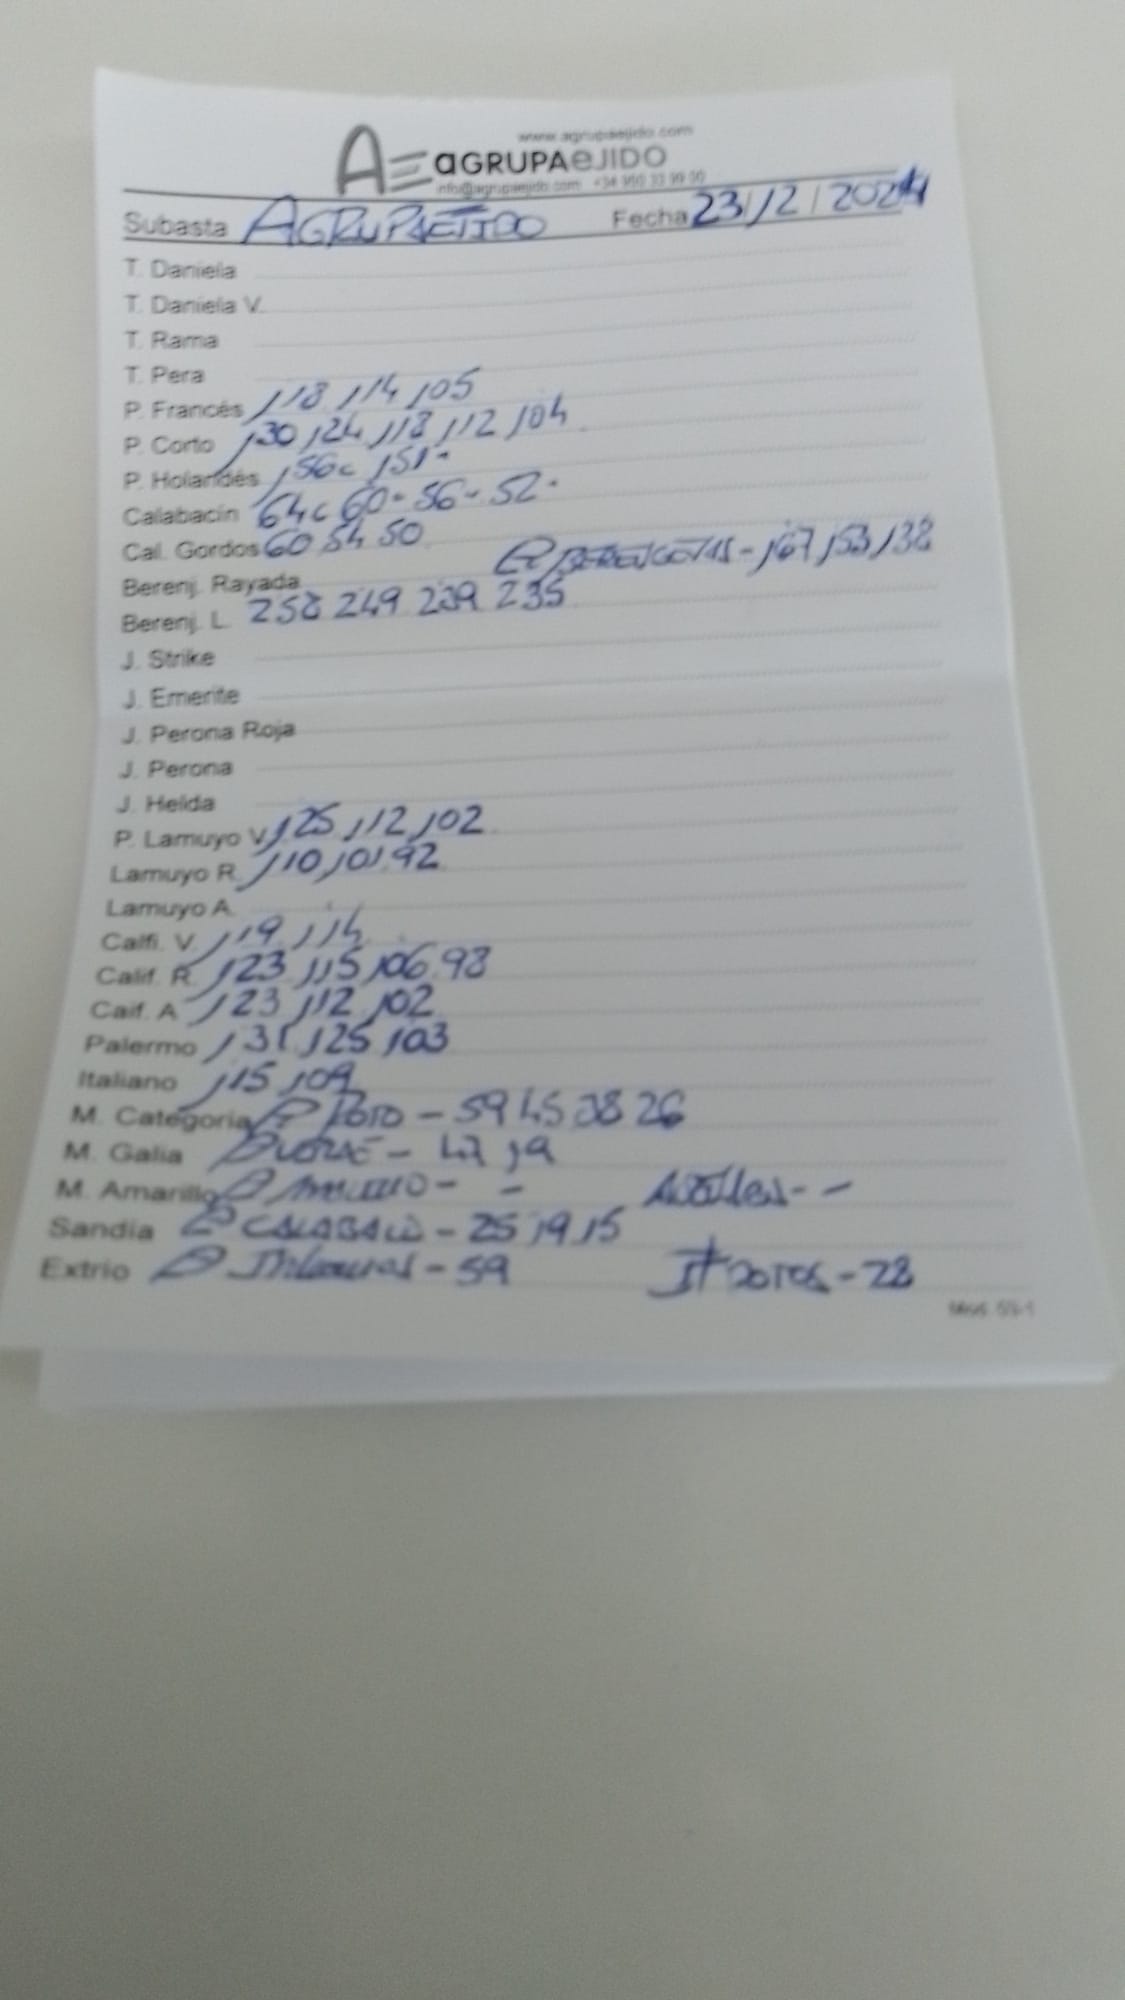 www.agrupaejido.com
AE aGRUPAeJIDO
info@agrupaejido.com +34 950 33 99 00
Subasta AGRUPAEJIDO Fecha 23/12/2024
T. Daniela
T. Daniela V.
T. Rama
T. Pera
P. Francés 118 114 105
P. Corto 130 124 118 112 104
P. Holandés 156c 151-
Calabacin 64c 60- 56- 52-
Cal. Gordos 60 54 50
BERENGENAS - 167 153 138
Berenj. Rayada
Berenj. L. 258 249 239 235
J. Strike
J. Emerite
J. Perona Roja
J. Perona
J. Helda
P. Lamuyo V. 125 112 102
Lamuyo R. 110 101 92
Lamuyo A.
Calfi. V. 119 114
Calif. R. 123 115 106 98
Caif. A 123 112 102
Palermo 131 125 103
Italiano 115 109
M. Categoria 59 45 38 26
M. Galia
M. Amarillo
Sandia CALABACIN - 25 19 15
Extrio - 59 - 28
Mod. 03-1